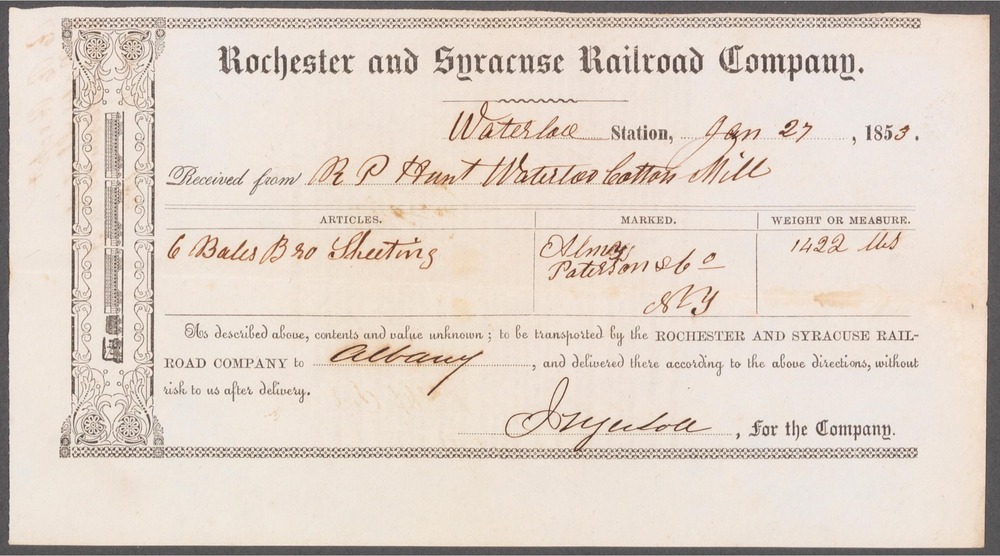 Rochester and Syracuse Railroad Company.
Waterloo Station, Jan 27, 1853.
Received from R P Hunt Waterloo Cotton Mill
ARTICLES. MARKED. WEIGHT OR MEASURE.
6 Bales Bro Sheeting Almy 1422 lbs
Paterson & Co
N Y
As described above, contents and value unknown; to be transported by the ROCHESTER AND SYRACUSE RAIL-
ROAD COMPANY to Albany, and delivered there according to the above directions, without
risk to us after delivery.
Ingersoll, For the Company.